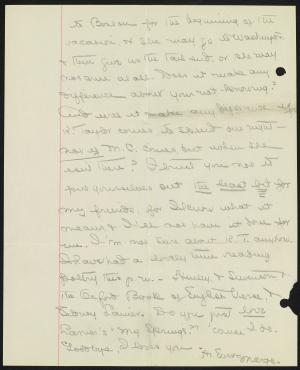 to Boston for the beginning of the
vacation, or she may go to Washington
& then give us the tail end, or she may
not come at all. Does it make any
difference about your not-knowing?
And will it make any difference if
K. Taylor comes to spend one night –
not if M.C. comes, but when she
isn't there? I trust you not to
put yourselves out the least bit for
my friends, for I know what it
means & I'll not have it done for
me. I'm not sure about K.T. anyhow.
I have had a lovely time reading
poetry this p.m. – Henley & Swinburne &
the Oxford Book of English Verse, &
Sidney Lanier. Do you just love
Lanier's "My Springs?" 'cause I do.
Goodbye, I love you